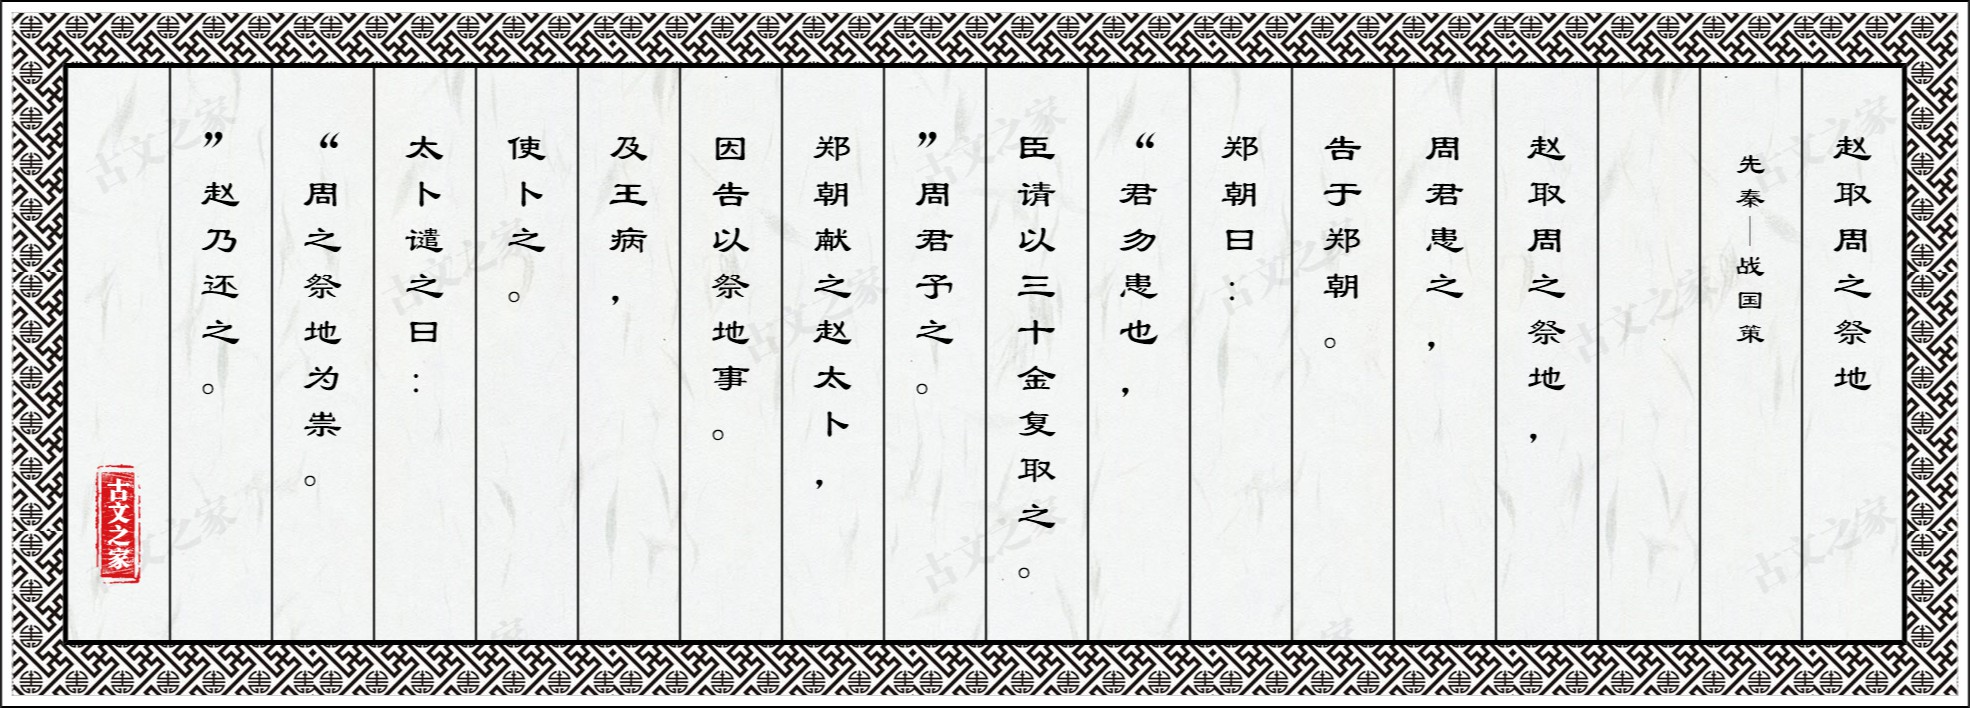 赵取周之祭地
先秦—战国策
赵取周之祭地，
周君患之，
告于郑朝。
郑朝曰：
“君勿患也，
臣请以三十金复取之。
”周君予之。
郑朝献之赵太卜，
因告以祭地事。
及王病，
使卜之。
太卜谴之曰：
“周之祭地为祟。
”赵乃还之。
古文之家